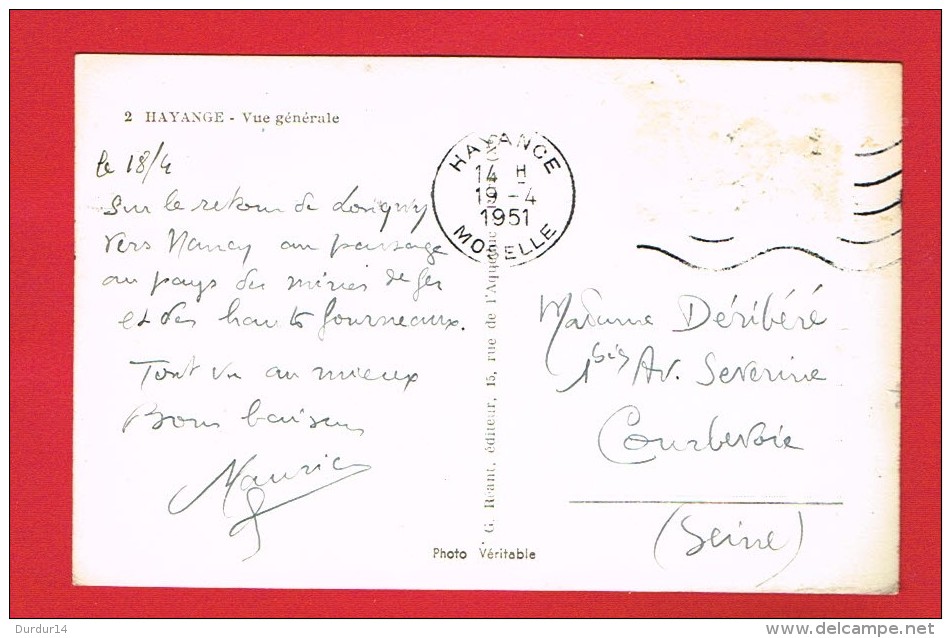 2 HAYANGE - Vue générale
le 18/4
Sur le retour de Longwy
vers Nancy au passage
au pays des mines de fer
et des hauts fourneaux.
Tout va au mieux
Bons baisers
Maurice
HAYANGE
14 H
19 - 4
1951
MOSELLE
G. Réant, éditeur, 15, rue de l'Aqueduc
Photo Véritable
Madame Déribéré
1bis Av. Severine
Courbevoie
(Seine)
Durdur14
delcampe.net